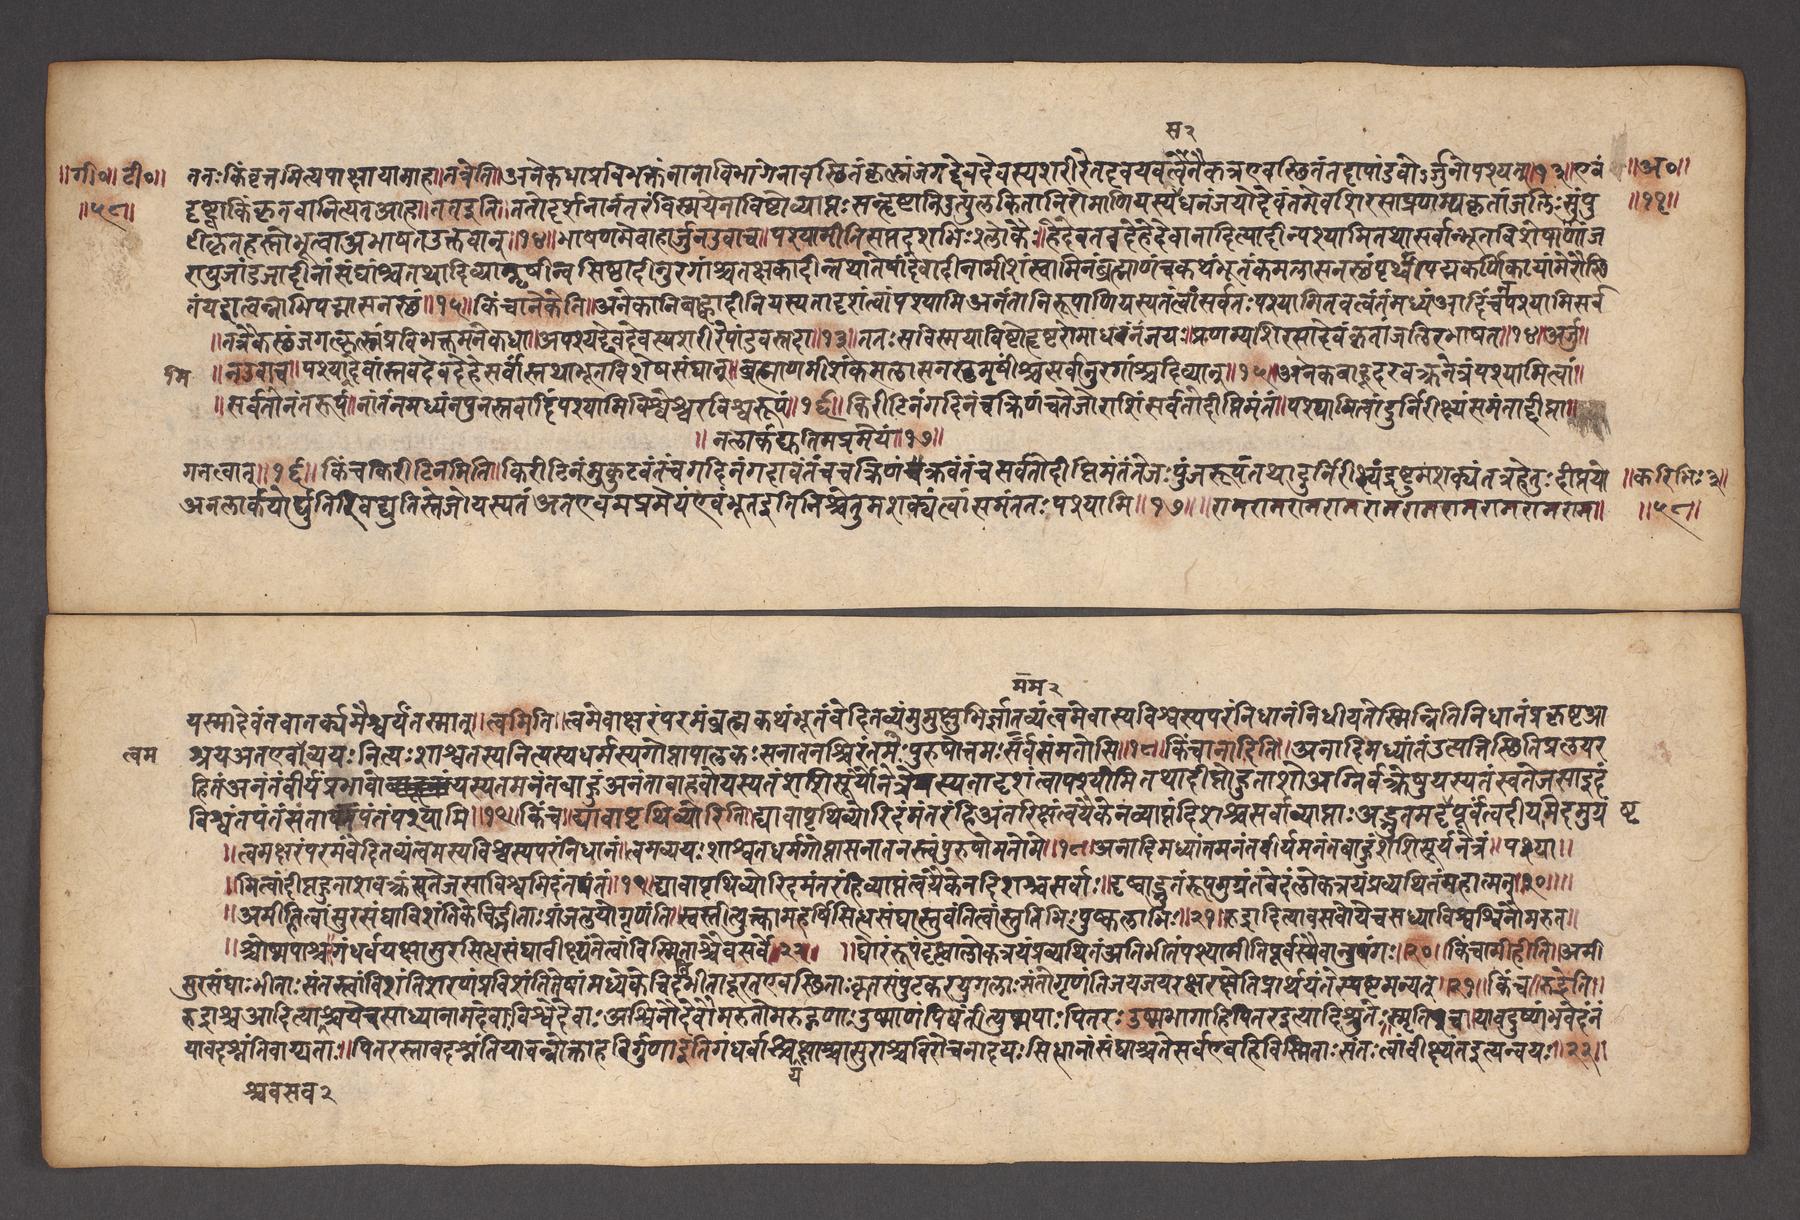 स२
॥गी०॥टी०॥ ततः किं वृत्तमित्यपेक्षायामाह॥तत्रेति॥अनेकधाप्रविभक्तंनानाविभागेनावस्थितंकृत्स्नंजगद्देवदेवस्यशरीरेतदवयवत्वेनैकत्रएवस्थितंतदापांडवोऽर्जुनोपश्यत्॥१३॥एवं ॥अ०॥
॥५८॥ दृष्ट्वाकिंकृतवानित्यतआह॥ततइति॥ततोदर्शनानंतरंविस्मयेनाविष्टोव्याप्तःसन्हृष्टानिउत्पुलकितानिरोमाणियस्यधनंजयोदेवंतमेवशिरसाप्रणम्यकृतांजलिःसंपु ॥११॥
टीकृतहस्तोभूत्वाअभाषतउक्तवान्॥१४॥भाषणमेवाहार्जुनउवाच॥पश्यामीतिसप्तदशभिःश्लोकैः॥हेदेवतवदेहेदेवानादित्यादीन्पश्यामितथासर्वान्भूतविशेषाणांज
रायुजांडजादीनांसंघांश्चतथादिव्यानृषीन्वसिष्ठादीनुरगांश्चतक्षकादीन्तथातेषांदेवादीनामीशंस्वामिनंब्रह्माणंचकथंभूतंकमलासनस्थंपृथ्वीपद्मकर्णिकायांमेरौस्थि
तंयद्वात्वन्नाभिपद्मासनस्थं॥१५॥किंचानेकेति॥अनेकानिबाह्वादीनियस्यतादृशंत्वांपश्यामिअनंतानिरूपाणियस्यतंत्वांसर्वतःपश्यामितवत्वंतंमध्यंआदिंचनपश्यामिसर्व
॥तत्रैकस्थंजगत्कृत्स्नंप्रविभक्तमनेकधा॥अपश्यद्देवदेवस्यशरीरेपांडवस्तदा॥१३॥ततःसविस्मयाविष्टोहृष्टरोमाधनंजयः॥प्रणम्यशिरसादेवंकृतांजलिरभाषत॥१४॥अर्जु॥
॥नउवाच॥पश्यामिदेवांस्तवदेवदेहेसर्वांस्तथाभूतविशेषसंघान्॥ब्रह्माणमीशंकमलासनस्थमृषींश्चसर्वानुरगांश्चदिव्यान्॥१५॥अनेकबाहूदरवक्त्रनेत्रंपश्यामित्वां॥
॥सर्वतोनंतरूपं॥नांतंनमध्यंनपुनस्तवादिंपश्यामिविश्वेश्वरविश्वरूपं॥१६॥किरीटिनंगदिनंचक्रिणंचतेजोराशिंसर्वतोदीप्तिमंतं॥पश्यामित्वांदुर्निरीक्ष्यंसमंताद्दीप्ता॥
॥नलार्कद्युतिमप्रमेयं॥१७॥
गतत्वात्॥१६॥किंचकिरीटिनमिति॥किरीटिनंमुकुटवंतंचगदिनंगदावंतंचचक्रिणंचक्रवंतंचसर्वतोदीप्तिमंतंतेजःपुंजरूपंतथादुर्निरीक्ष्यंद्रष्टुमशक्यंतत्रहेतुःदीप्तयो ॥करिभिः३॥
अनलार्कयोर्द्युतिरिवद्युतिस्तेजोयस्यतंअतएवमप्रमेयंएवंभूतइतिनिश्चेतुमशक्यंत्वांसमंततःपश्यामि॥१७॥॥रामरामरामरामरामरामरामरामरामराम॥ ॥५८॥
मम२
यस्मादेवंतवातर्क्यमैश्वर्यंतस्मात्॥त्वमिति॥त्वमेवाक्षरंपरमंब्रह्मकथंभूतंवेदितव्यंमुमुक्षुभिर्ज्ञातव्यंत्वमेवास्यविश्वस्यपरंनिधानंनिधीयतेस्मिन्नितिनिधानंप्रकृष्टआ
त्वम श्रयअतएवाव्ययःनित्यःशाश्वतस्यनित्यस्यधर्मस्यगोप्तापालकःसनातनश्चिरंतनःपुरुषोत्तमःसर्वसंमतोसि॥१८॥किंचानादिति॥अनादिमध्यांतंउत्पत्तिस्थितिप्रलयर
हितंअनंतंवीर्यंप्रभावोयस्यतमनंतबाहुंअनंताबाहवोयस्यतंशशिसूर्यौनेत्रेयस्यतादृशंत्वांपश्यामितथादीप्तोहुताशोअग्निर्वक्त्रेषुयस्यतंस्वतेजसाइदं
विश्वंतपंतंसंतापयंतंपश्यामि॥१९॥किंच॥द्यावापृथिव्योरिति॥द्यावापृथिव्योरिदंमंतरंहिअंतरिक्षंत्वयैकेनव्याप्तंदिशश्चसर्वाव्याप्ताःअद्भुतमदृष्टपूर्वंत्वदीयमिदमुग्रं ष्ट
॥त्वमक्षरंपरमंवेदितव्यंत्वमस्यविश्वस्यपरंनिधानं॥त्वमव्ययःशाश्वतधर्मगोप्तासनातनस्त्वंपुरुषोमतोमे॥१८॥अनादिमध्यांतमनंतवीर्यमनंतबाहुंशशिसूर्यनेत्रं॥पश्या॥
॥मित्वांदीप्तहुताशवक्त्रंस्वतेजसाविश्वमिदंतपंतं॥१९॥द्यावापृथिव्योरिदमंतरंहिव्याप्तंत्वयैकेनदिशश्चसर्वाः॥दृष्ट्वाद्भुतंरूपमुग्रंतवेदंलोकत्रयंप्रव्यथितंमहात्मन्॥२०॥॥
॥अमीहित्वांसुरसंघाविशंतिकेचिद्भीताःप्रांजलयोगृणंति॥स्वस्तीत्युक्त्वामहर्षिसिद्धसंघास्तुवंतित्वांस्तुतिभिःपुष्कलाभिः॥२१॥रुद्रादित्यावसवोयेचसाध्याविश्वेश्विनौमरुत॥
॥श्चोष्मपाश्च॥गंधर्वयक्षासुरसिद्धसंघावीक्ष्यंतेत्वांविस्मिताश्चैवसर्वे॥२२॥ ॥घोरंरूपंदृष्ट्वालोकत्रयंप्रव्यथितंअतिभीतंपश्यामीतिपूर्वस्यैवानुषंगः॥२०॥किंचामीहीति॥अमी
सुरसंघाःभीताःसंतस्त्वांविशंतिशरणंप्रविशंतितेषांमध्येकेचिद्भीतादूरतएवस्थिताःकृतसंपुटकरयुगलाःसंतोगृणंतिजयजयरक्षरक्षेतिप्रार्थयंतेस्पष्टमन्यत्॥२१॥किंच॥रुद्रेति॥
रुद्राश्चआदित्याश्चयेचसाध्यानामदेवाःविश्वेदेवाःअश्विनौदेवौमरुतोमरुद्गणाःउष्माणंपिबंतीत्युष्मपाःपितरःउष्मभागाहिपितरइत्यादिश्रुतेःस्मृतिश्चयावदुष्णंभवेदंनं
यावदश्नंतिवाग्यताः॥पितरस्तावदश्नंतियावन्नोक्ताहविर्गुणाइतिगंधर्वाश्चयक्षाश्चासुराश्चविरोचनादयःसिद्धानांसंघाश्चतेसर्वएवहिविस्मिताःसंतःत्वांवीक्ष्यंतइत्यन्वयः॥२२॥
श्चवसव२